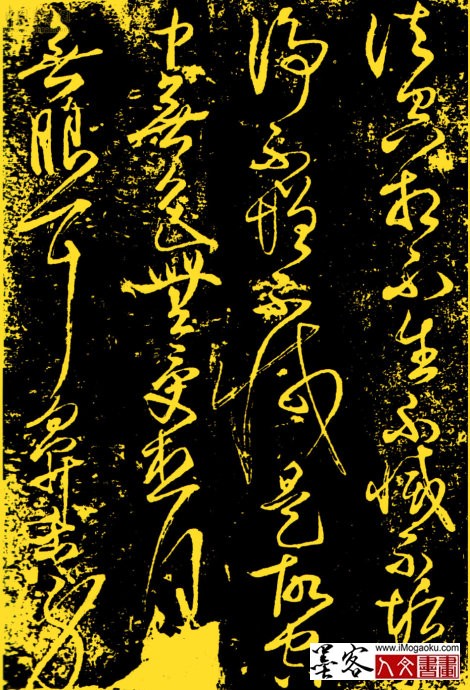 法空相不生不滅不垢
淨不增不減是故空
中無色無受想行
無眼耳鼻舌身
墨客
www.iMogaoku.com
人文書畫